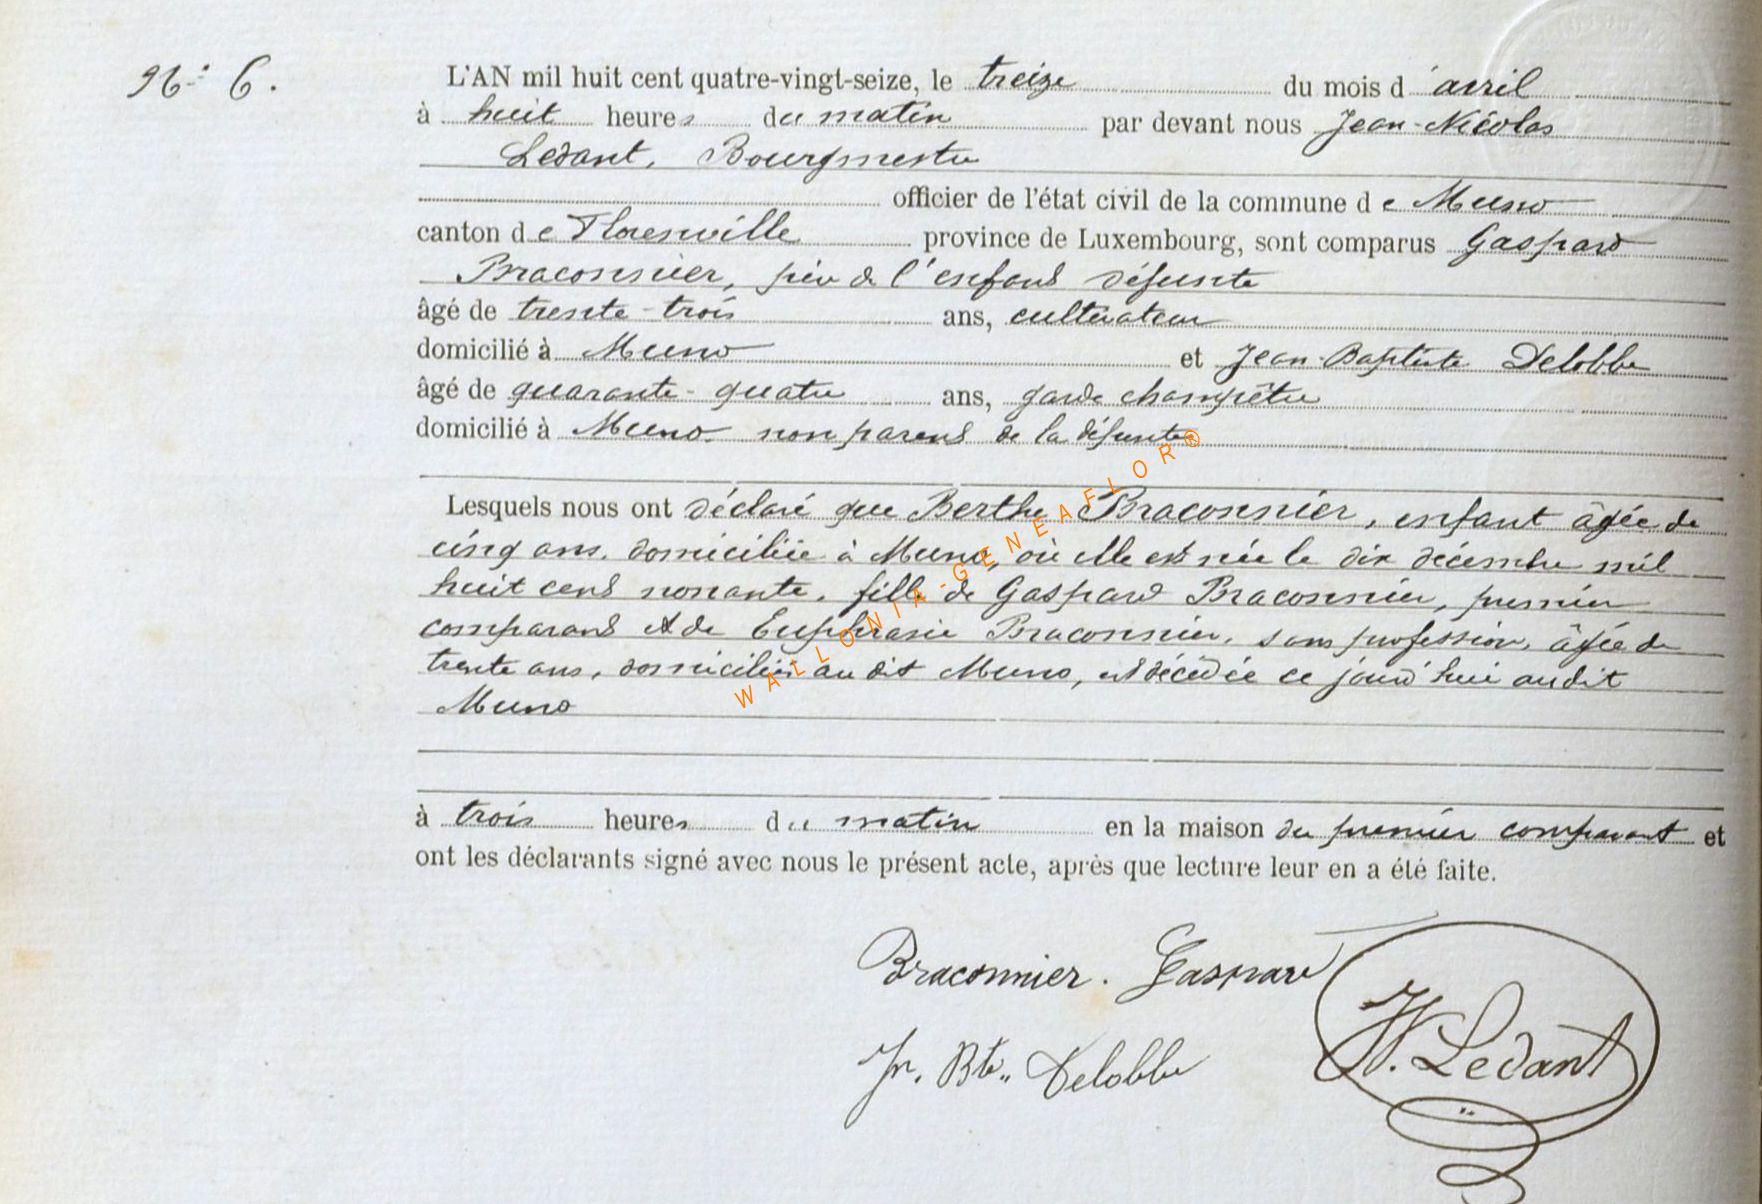 N° 6.
L'AN mil huit cent quatre-vingt-seize, le treize du mois d'avril
à huit heures du matin par devant nous Jean-Nicolas
Ledant, Bourgmestre
officier de l'état civil de la commune de Muno
canton de Florenville province de Luxembourg, sont comparus Gaspard
Braconnier, père de l'enfant défunte
âgé de trente-trois ans, cultivateur
domicilié à Muno et Jean-Baptiste Delobbe
âgé de quarante-quatre ans, garde champêtre
domicilié à Muno non parent de la défunte
Lesquels nous ont déclaré que Berthe Braconnier, enfant âgée de
cinq ans, domiciliée à Muno, où elle est née le dix décembre mil
huit cent nonante, fille de Gaspard Braconnier, premier
comparant et de Euphrasie Braconnier, sans profession, âgée de
trente ans, domiciliée au dit Muno, est décédée ce jourd'hui audit
Muno
à trois heures du matin en la maison du premier comparant et
ont les déclarants signé avec nous le présent acte, après que lecture leur en a été faite.
Braconnier. Gaspard
Jn. Bte.. Delobbe
N. Ledant
WALLONIA-GENEAFLOR®